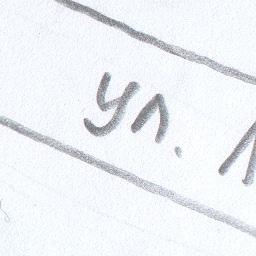 ул.